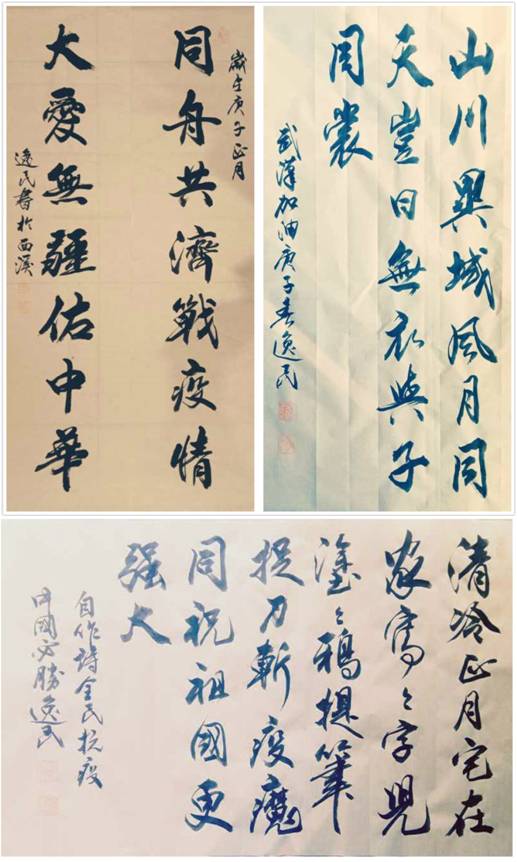 歲在庚子正月
同舟共濟戰疫情
大愛無疆佑中華
逸民書於西溪
山川異域風月同
天豈曰無衣與子
同裳
武漢加油庚子春逸民
清冷正月宅在
家寫々字兒
塗々鴉提筆
捉刀斬疫魔
同祝祖國更
强大
自作詩全民抗疫
中國必勝逸民